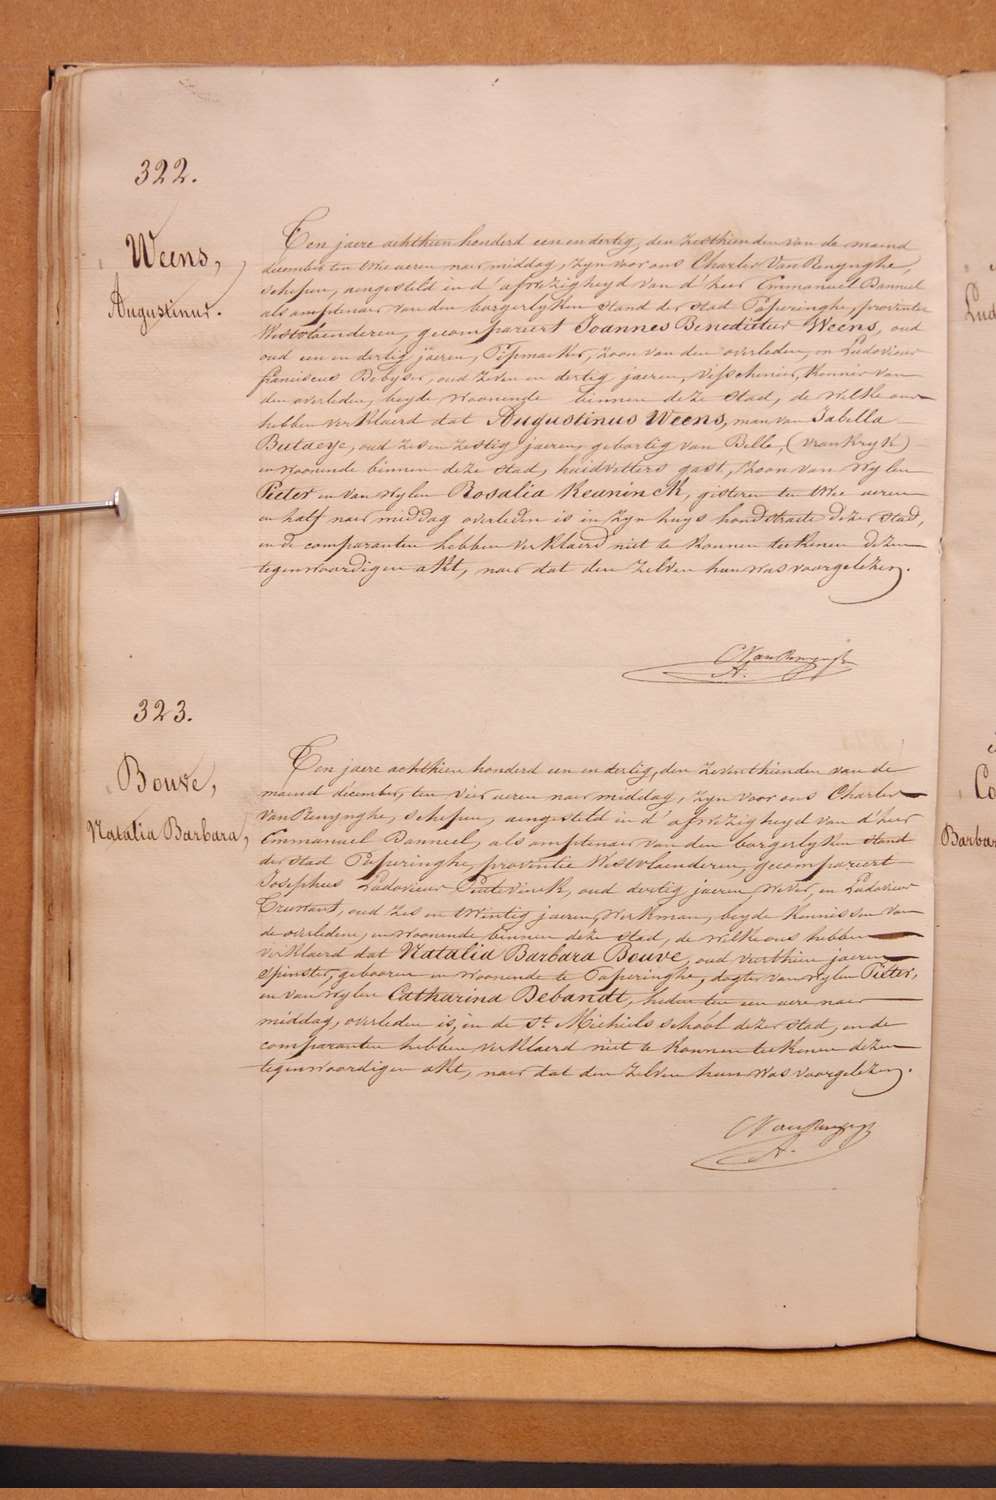 322.
Weens,
Augustinus.
Ten jaere achthien honderd een en dertig, den zesthienden van de maend
december ten twee uren naer middag, zyn voor ons Charles Van Renynghe,
schepen, aengesteld in d'afwezigheyd van d'heer Emmanuel Banneel
als amptenaer van den borgerlyken stand der stad Poperinghe, provintie
Westvlaenderen, gecompareert Joannes Benedictus Weens, oud
oud een en dertig jaeren, zoon van den overleden, en Ludovicus
franciscus Debyser, oud zeven en dertig jaeren, visschenier, kennis van
den overleden, beyde woonende binnen deze stad, de welke ons
hebben verklaerd dat Augustinus Weens, man van Isabella
Butaeye, oud zes en zestig jaeren, gebortig van Belle, (vrankryk)
en woonende binnen deze stad, huidvetters gast, zoon van wylen
Pieter en van wylen Rosalia Keuninck, gisteren ten twee ueren
en half naer middag overleden is in zyn huys hondstraete dezer stad,
en de comparanten hebben verklaerd niet te konnen teekenen dezen
tegenwoordigen akt, naer dat den zelven hun was voorgelezen.
C Van Renynghe
A.
323.
Bouve,
Natalia Barbara,
Ten jaere achthien honderd een en dertig, den zeventhienden van de
maend december, ten vier ueren naer middag, zyn voor ons Charles
Van Renynghe, schepen, aengesteld in d'afwezigheyd van d'heer
Emmanuel Banneel, als amptenaer van den borgerlyken stand
der stad Poperinghe, provintie Westvlaenderen, gecompareert
Josephus Ludovicus oud dertig jaeren, wever, en Ludovicus
oud zes en twintig jaeren, werkman, beyde kennissen van
de overledene, en woonende binnen deze stad, de welke ons hebben
verklaerd dat Natalia Barbara Bouve, oud veerthien jaeren
spinster, gebooren en woonende te Poperinghe, dogter van wylen Pieter,
en van wylen Catharina Debandt, heden ten een uere naer
middag, overleden is, in de St. Michiels school dezer stad, en de
comparanten hebben verklaerd niet te konnen teekenen dezen
tegenwoordigen akt, naer dat den zelven hun was voorgelezen.
C Van Renynghe
A.
Lud
Co
Barbar